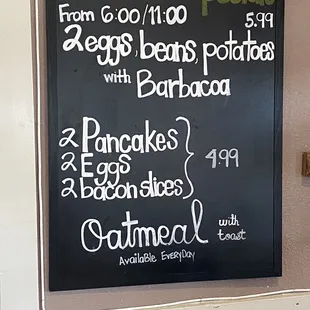 From 6:00/11:00 5.99
2eggs, beans, potatoes
with Barbacoa
2 Pancakes
2 Eggs 4.99
2 bacon slices
Oatmeal with toast
Available EveryDay